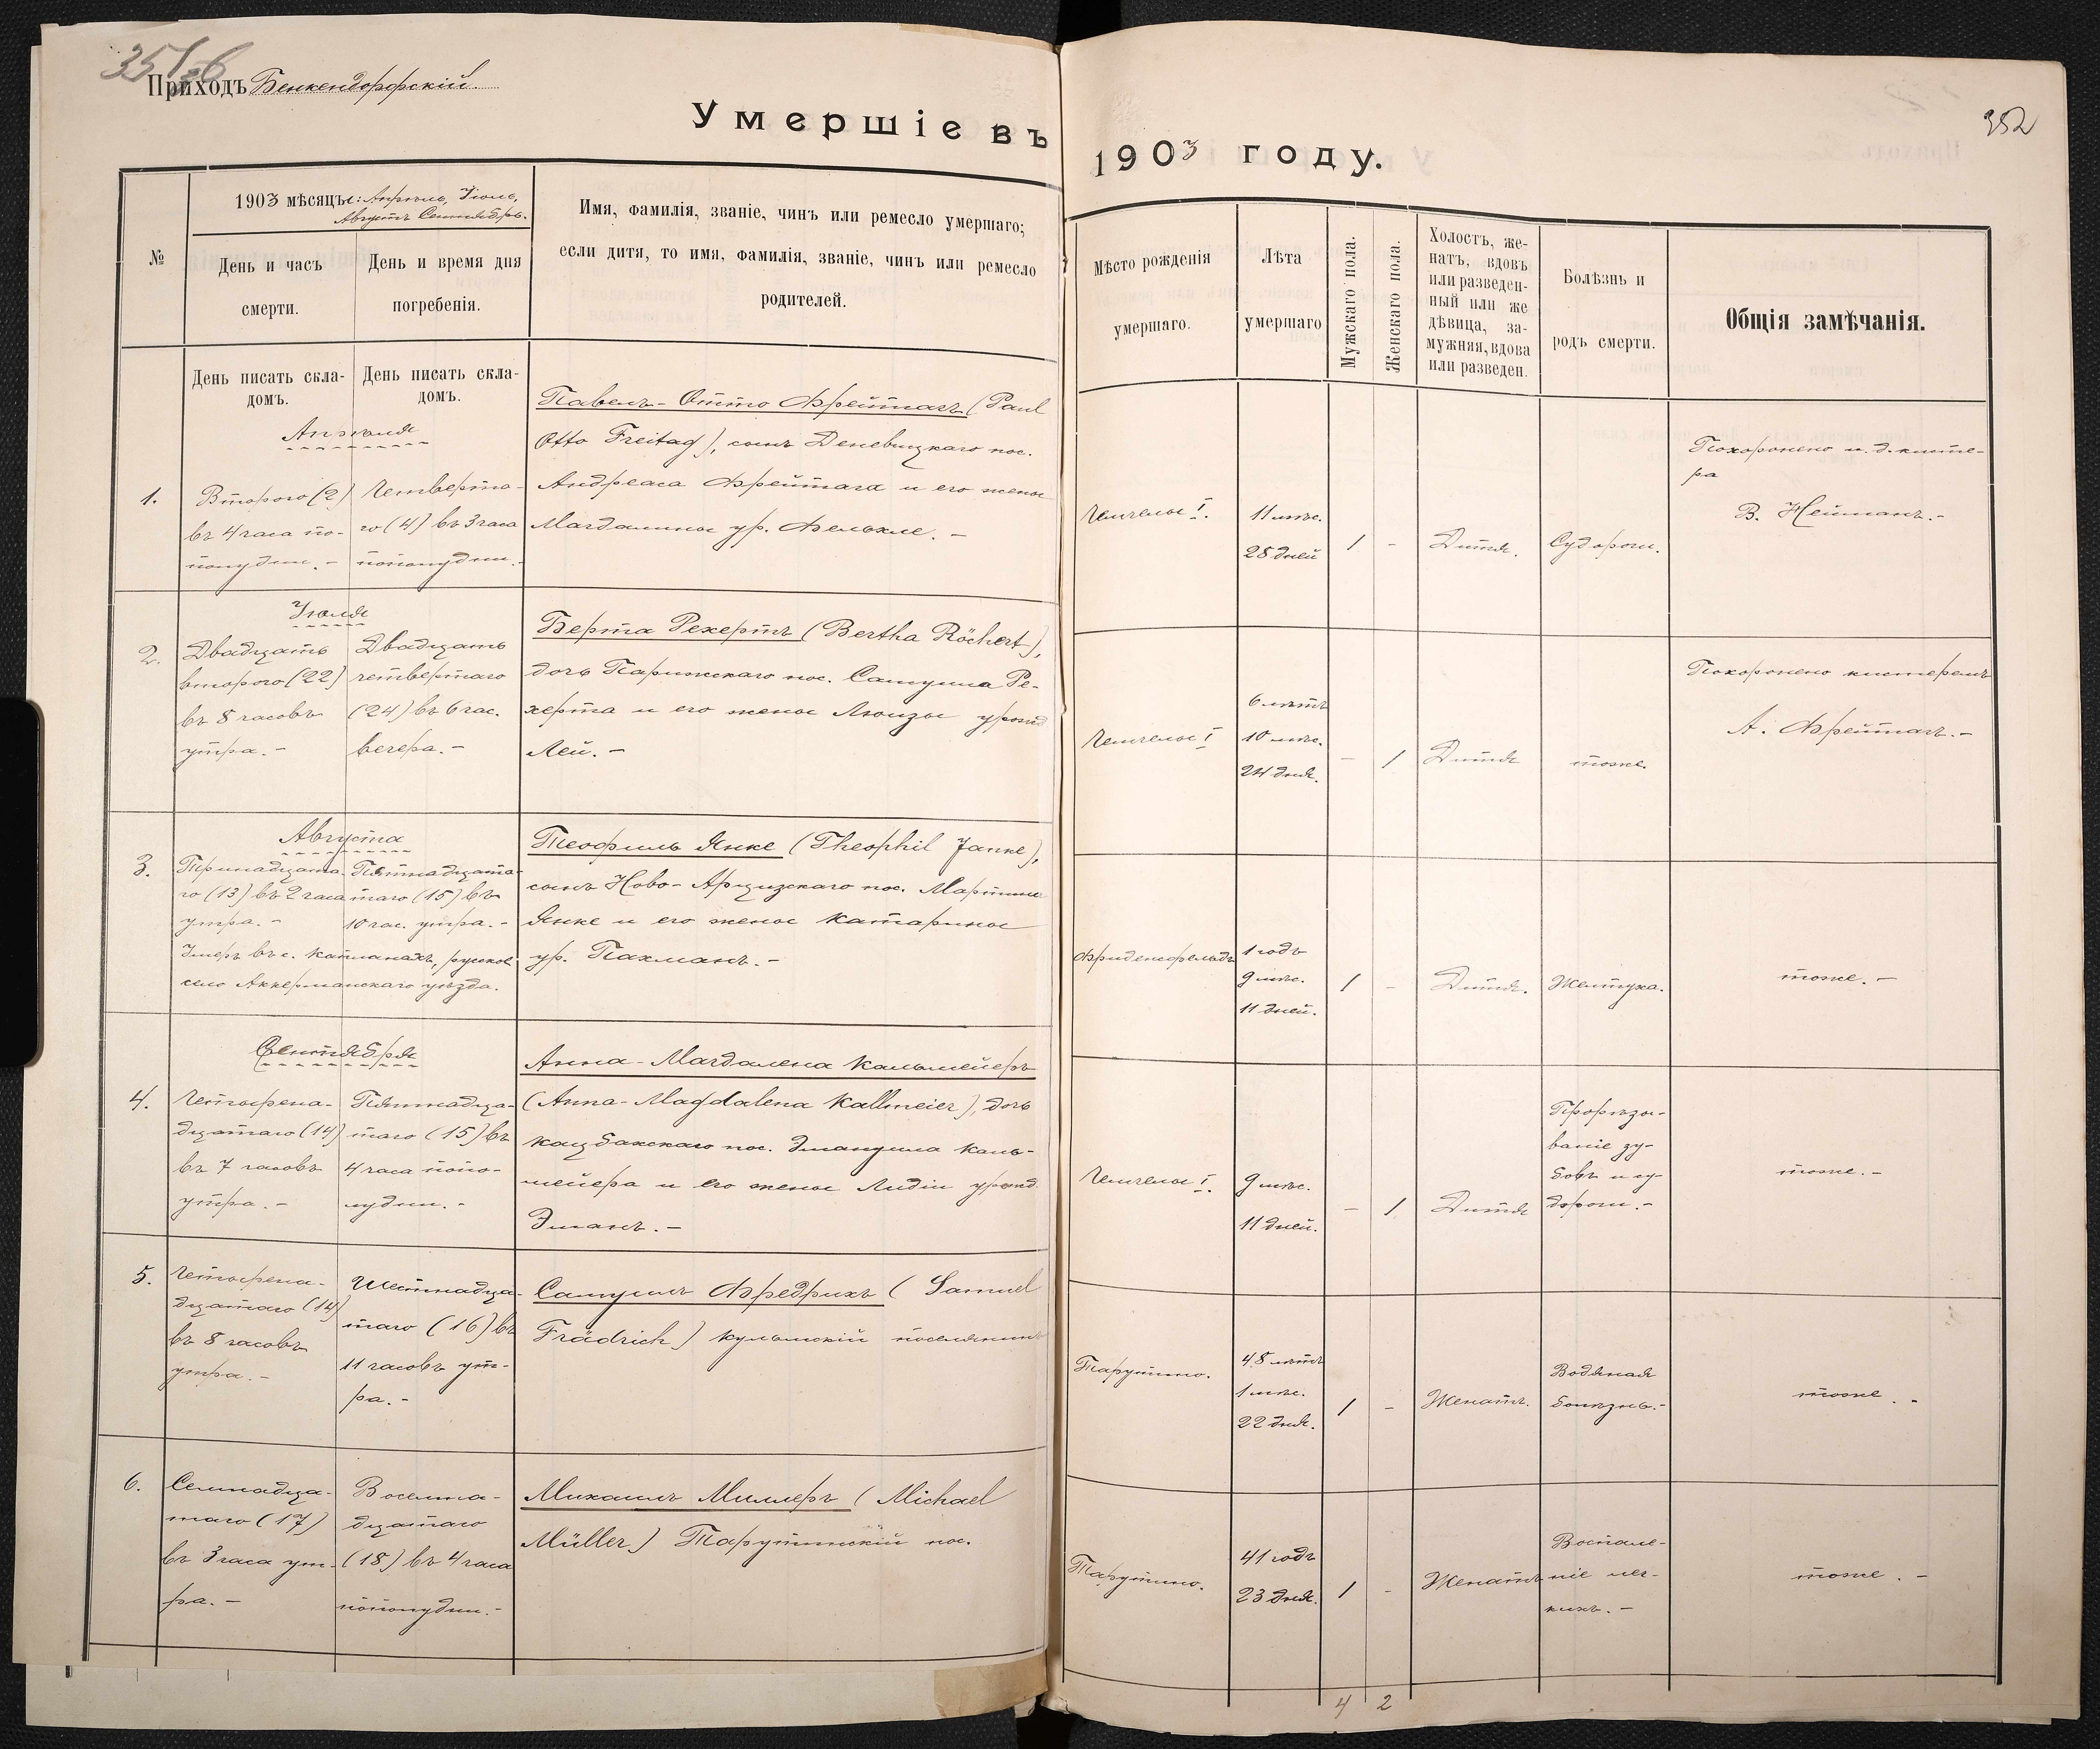 Приходъ Бенкендорфскій.
Умершіе въ
1903 году.
352
№
1903 мѣсяцы: Апрѣль, Іюль,
Августъ Сентябрь.
День и часъ
смерти.
День и время дня
погребенія.
Имя, фамилія, званіе, чинъ или ремесло умершаго;
если дитя, то имя, фамилія, званіе, чинъ или ремесло
родителей.
Мѣсто рожденія
умершаго.
Лѣта
умершаго
Мужскаго пола.
Женскаго пола.
Холостъ, же-
натъ, вдовъ
или разведен-
ный или же
дѣвица, за-
мужняя, вдова
или разведен.
Болѣзнь и
родъ смерти.
Общія замѣчанія.
День писать скла-
домъ.
День писать скла-
домъ.
Апрѣля
1.
Второго (2)
въ 4 часа по-
полудни. -
Четверта-
го (4) въ 3 часа
пополудни. -
Павелъ-Отто Фрейтагъ (Paul
Otto Freitag), сынъ Деневицкаго пос.
Андреаса Фрейтага и его жены
Магдалины ур. Фелькле. -
Чемчелы I.
11 мѣс.
28 дней
1
-
Дитя.
Судороги.
Похоронено и. д. кисте-
ра
В. Нейманъ. -
Іюля
2.
Двадцать
второго (22)
въ 8 часовъ
утра. -
Двадцать
четвертаго
(24) въ 6 час.
вечера. -
Берта Рехертъ (Bertha Röchert),
дочь Парижскаго пос. Самуила Ре-
херта и его жены Люизы урожд
Лей. -
Чемчелы I
6 лѣтъ
10 мѣс.
24 дня.
-
1
Дитя
тоже.
Похоронено кистеромъ
А. Фрейтагъ. -
Августа
3.
Тринадцата-
го (13) въ 2 часа
утра. -
Пятнадцата-
таго (15) въ
10 час. утра. -
Умеръ въ с. Капланахъ, русское
село Аккерманскаго уѣзда.
Теофиль Янке (Theophil Janke),
сынъ Ново-Арцизскаго пос. Мартина
Янке и его жены Катарины
ур. Пахманъ. -
Фриденсфельдъ
1 годъ
9 мѣс.
11 дней.
1
-
Дитя.
Желтуха.
тоже. -
Сентября
4.
Четырена-
дцатаго (14)
въ 7 часовъ
утра. -
Пятнадца-
таго (15) въ
4 часа попо-
лудни. -
Анна-Магдалена Кальмейеръ
(Anna-Magdalena Kallmeier), дочь
Кацбахскаго пос. Эмануила Каль-
мейера и его жены Лидіи урожд.
Эманъ. -
Чемчелы I.
9 мѣс.
11 дней.
-
1
Дитя
Прорѣзы-
ваніе зу-
бовъ и су-
дороги. -
тоже. -
5.
Четырена-
дцатаго (14)
въ 8 часовъ
утра. -
Шестнадца-
таго (16) въ
11 часовъ ут-
ра. -
Самуилъ Фредрихъ (Samuel
Frädrich) Кульмскій поселянинъ
Тарутино.
48 лѣтъ
1 мѣс.
22 дня.
1
-
Женатъ.
Водяная
болѣзнь. -
тоже. -
6.
Семнадца-
таго (17)
въ 3 часа ут-
ра. -
Восемна-
дцатаго
(18) въ 4 часа
пополудни. -
Михаилъ Миллеръ (Michael
Müller) Тарутинскій пос.
Тарутино.
41 годъ
23 дня.
1
-
Женатъ
Воспале-
ніе лег-
кихъ. -
тоже. -
4
2